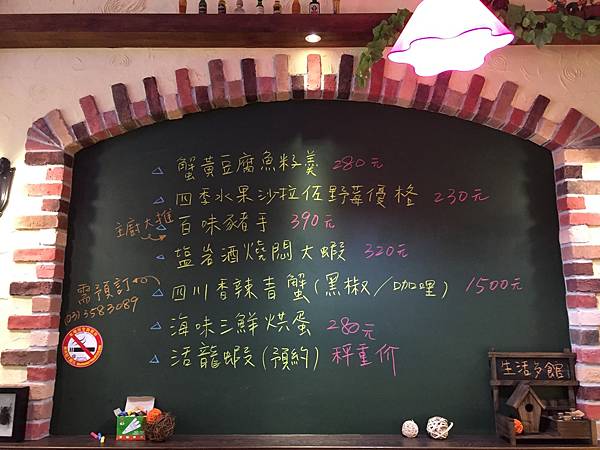 △ 蟹黃豆腐魚籽羹 280元
△ 四季水果沙拉佐野莓優格 230元
主廚大推
△ 百味豬手 390元
△ 塩岩酒燒悶大蝦 320元
需預訂
(03)3583089
△ 四川香辣青蟹(黑椒/咖哩) 1500元
△ 海味三鮮烘蛋 280元
△ 活龍蝦(預約) 秤重价
生活多館